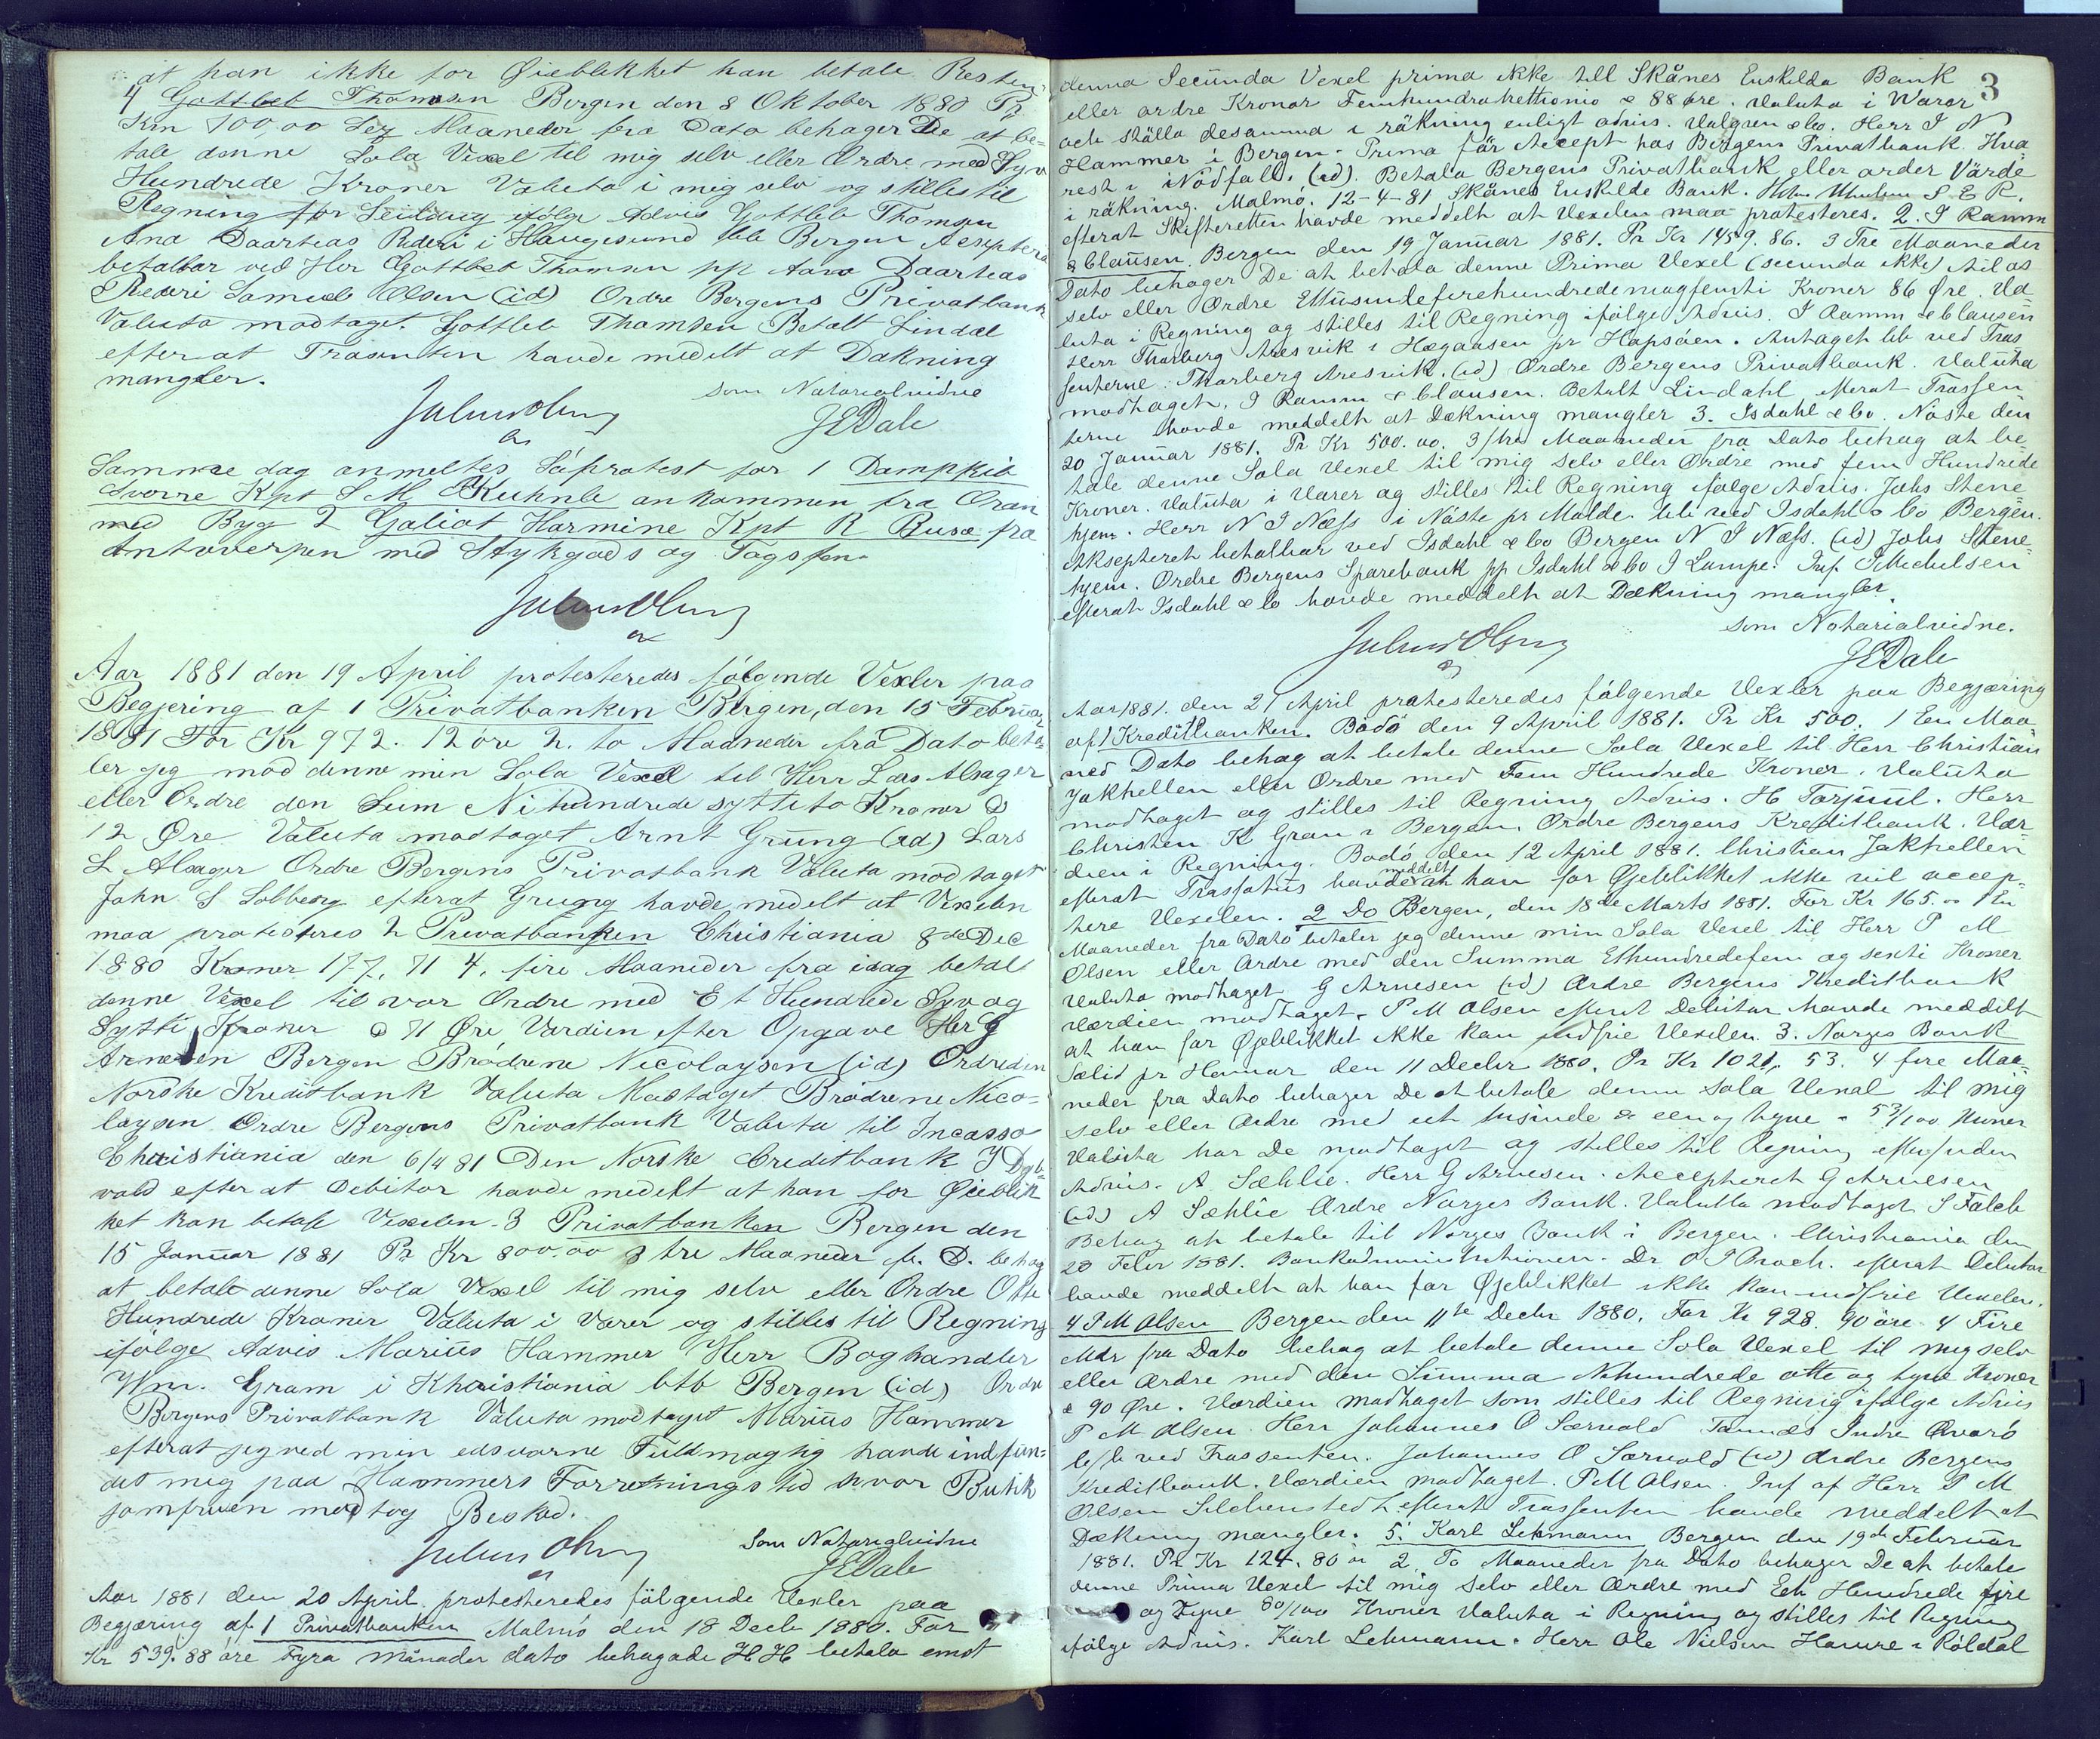 at han ikke for Øieblikket kan betale Resten
4 Gottleb Thomsen Bergen den 8 Oktober 1880 Pr
Krn 700,00 Sex Maaneder fra Dato behager De at be-
tale denne Sola Vexel til mig selv eller Ordre med Syv
Hundrede Kroner Valuta i mig selv og stilles til
Regning for Seildug ifølge Advis Gottleb Thomsen
Ana Daarteas Rederi i Haugesund btb Bergen Aksepteret
betalbar ved Her Gottleb Thomsen pp Aana Daarteas
Rederi Samuel Olsen (id) Ordre Bergens Privatbank
Valuta modtaget. Gottleb Thomsen Betalt Lindal
efterat Trasenten havde medelt at Dækning
mangler.
som Notarialvidne
Julius Olsen JEDale
Samme dag anmeltes Söprotest for 1 Dampskib
Sverre Kpt S M Kuhnle ankommen fra Oran
med Byg 2 Galiot Harmine Kpt R Buse fra
Antwerpen med Stykgods og Tagsten.
Julius Olsen
Aar 1881 den 19 April protesteredes følgende Vexler paa
Begjering af 1 Privatbanken Bergen, den 15 Februar
1881 For Kr 972. 12 öre 2. to Maaneder fra Dato beta-
ler jeg mod denne min Sola Vexel til Herr Lars Alsager
eller Ordre den Sum Nihundrede syttito Kroner &
12 Øre Valuta modtaget Arnt Grung (id) Lars
L Alsager Ordre Bergens Privatbank Valuta modtaget
John S Solberg efterat Grung havde medelt at Vexelen
maa protesteres 2 Privatbanken Christiania 8de Dec
1880 Kroner 177, 71 4, fire Maaneder fra idag betal
denne Vexel til vor Ordre med Et Hundrede Syv og
Sytti Kroner & 71 Øre Værdien efter Opgave Her G
Arnesen Bergen Brödrene Nicolaysen (id) Ordre den
Norske Kreditbank Valuta Modtaget Brödrene Nico-
laysen Ordre Bergens Privatbank Valuta til Incasso
Christiania den 6/4 81 Den Norske Creditbank
efter at Debitor havde medelt at han for Øieblik
ket kan betale Vexelen. 3 Privatbanken Bergen den
15 Januar 1881 Pr Kr 800.00 3 tre Maaneder fr. D. behag
at betale denne Sola Vexel til mig selv eller Ordre Otte
Hundrede Kroner Valuta i Varer og stilles til Regning
ifölge Advis Marius Hammer Herr Boghandler
Wm. Gram i Khristiania btb Bergen (id) Ordre
Bergens Privatbank Valuta modtaget Marius Hammer
efterat jeg ved min edsvorne Fuldmægtig havde indfun-
det mig paa Hammers Forretningssted hvor Butik
jomfruen modtog Besked.
Som Notarialvidne
Julius Olsen JEDale
Aar 1881 den 20 April protesteredes fölgende Vexler paa
Begjæring af 1 Privatbanken Malmö den 18 Decb 1880. For
Kr 539.88 öre Fyra månader dato behagade H H betala emot
3
denna Secunda Vexel prima ikke till Skånes Enskilda Bank
eller ordre Kronor Femhundratrettionio & 88 öre. Valuta i Waror
och ställa desamma i räkning enligt advis. Valgren & Co. Herr I N
Hammer i Bergen. Prima får Accept hos Bergens Privatbank. Hva
rest i Nödfald. (id). Betala Bergens Privatbank eller order Värde
i räkning. Malmö. 12-4-81 Skånes Enskilda Bank. S E R.
efterat Skifteretten havde meddelt at Vexelen maa protesteres. 2. I Ramm
& Clausen. Bergen den 19 Januar 1881. Pr Kr 1459. 86. 3 Tre Maaneder
Dato behager De at betala denne Prima Vexel (secunda ikke) til os
selv eller Ordre Ettusindefirehundredenogfemti Kroner 86 Øre. Va
luta i Regning og stilles til Regning ifölge Advis. I Ramm & Clausen
Herr Thorberg Aresvik i Hægaasen pr Hopsöen. Antaget btb ved Tras
senterne. Thorberg Aresvik. (id) Ordre Bergens Privatbank. Valuta
modtaget. I Ramm & Clausen. Betalt Lindahl efterat Trassen
terne havde meddelt at Dækning mangler 3. Isdahl & Co. Næste den
20 Januar 1881. Pr Kr 500.00. 3/tre Maaneder fra Dato behag at be
tale denne Sola Vexel til mig selv eller Ordre med fem Hundrede
Kroner. Valuta i Varer og stilles til Regning ifölge Advis. Johs Stene
hjem. Herr N I Næss i Näste pr Molde. btb ved Isdahl & Co Bergen.
Aksepteret betalbar ved Isdahl & Co Bergen N I Næss. (id) Johs Stene-
hjem. Ordre Bergens Sparebank pp Isdahl & Co I Lampe. Inf I Michelsen
efterat Isdahl & Co havde meddelt at Dækning mangler.
som Notarialvidne.
Julius Olsen JEDale
Aar 1881. den 21 April protesteredes fölgende Vexler paa Begjæring
af 1 Kreditbanken. Bodö den 9 April 1881. Pr Kr 500. 1 En Maa
ned Dato behag at betale denne Sola Vexel til Herr Christian
Jakhellen eller Ordre med Fem Hundrede Kroner. Valuta
modtaget og stilles til Regning Advis. H Torjuul. Herr
Christen K Gran i Bergen. Ordre Bergens Kreditbank. Vær
dien i Regning. Bodö den 12 April 1881. Christian Jakhellen
efterat Trassatus havde meddelt at han for Øjeblikket ikke vil accep-
tere Vexelen. 2 Do Bergen, den 18de Marts 1881. For Kr 165.00 1 En
Maaneder fra Dato betaler jeg denne min Sola Vexel til Herr P M
Olsen eller Ordre med den Summa Ethundredefem og sexti Kroner
Valuta modtaget G Arnesen (id) Ordre Bergens Kreditbank
Værdien modtaget. P M Olsen efterat Debitor havde meddelt
at han for Øjeblikket ikke kan indfrie Vexelen. 3. Norges Bank
Sælid pr Hamar den 11 Decbr 1880. Pr Kr 1021. 53. 4 fire Maa-
neder fra Dato behager De at betale denne Sola Vexel til mig
selv eller Ordre med ett tusinde & een og tyve - 53/100 Kroner
Valuta har De modtaget og stilles til Regning uden
Advis. A Sæhlie. Herr G Arnesen. Accepteret G Arnesen
(id) A Sæhlie Ordre Norges Bank. Valutta modtaget S Falch
Behag at betale til Norges Bank i Bergen. Christiania den
28 Febr 1881. Bankadministrationen. Dr O J Broch. efterat Debitor
havde meddelt at han for Øjeblikket ikke kan indfrie Vexelen.
4 P M Olsen Bergen den 11te Decbr 1880. For Kr 928. 90 öre 4 Fire
Mdr fra Dato behag at betale denne Sola Vexel til mig selv
eller Ordre med den Summa Nihundrede otte og tyve Kroner
& 90 Øre. Værdien modtaget som stilles til Regning ifölge Advis
P M Olsen. Herr Johannes O Særvold Indre
b/b ved Trassenten. Johannes O Særvold (id) Ordre Bergens
Kreditbank. Værdien modtaget. P M Olsen. Inf af Herr P M
Olsen efterat Trassenten havde meddelt at
Dækning mangler. 5. Karl Lehmann Bergen den 19de Februar
1881. Pr Kr 124. 80 ör 2. To Maaneder fra Dato behager De at betale
denne Prima Vexel til mig selv eller Ordre med Eet Hundrede fire
og Tyve 80/100 Kroner Valuta i Regning og stilles til Regning
ifölge Advis. Karl Lehmann. Herr Ole Nielsen Hamre i Röldal